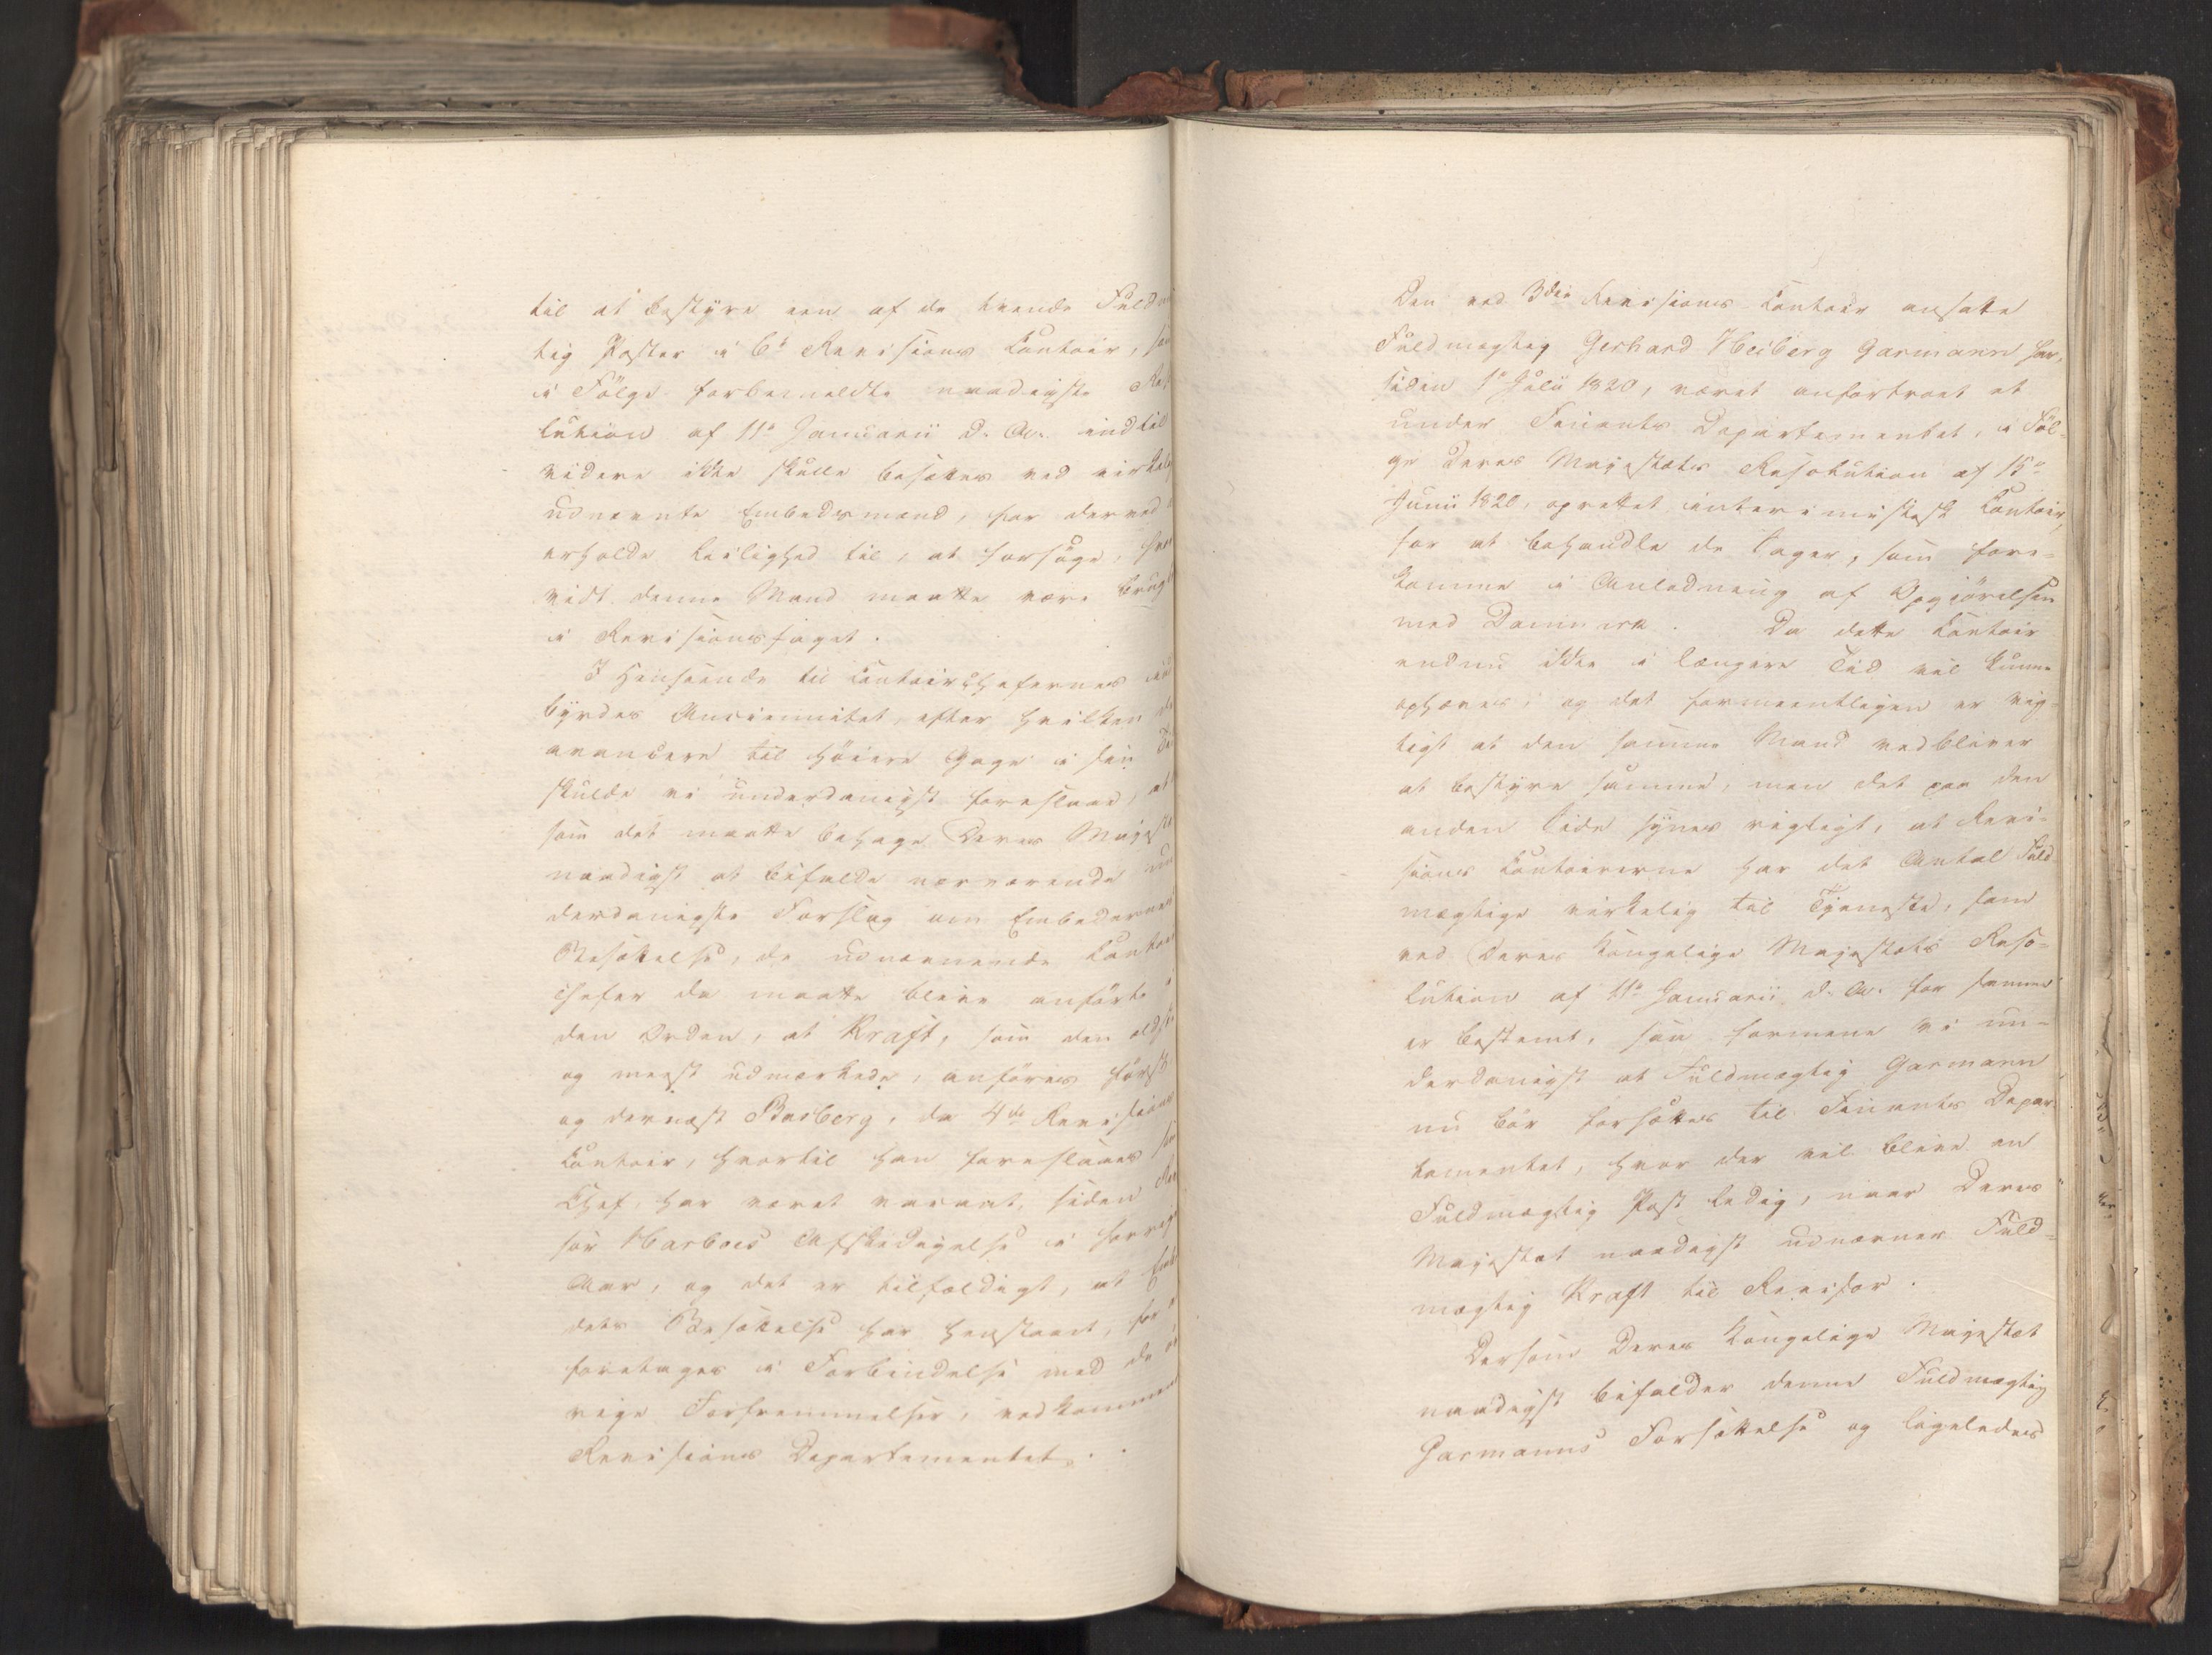 til at bestyre een af de tvende Fuldm
tig Poster i 6te Revisions Contoir, som
i Fölge forbemeldte naadigste Reso
lution af 11te Januarii d. A. indtil
videre ikke skulle besættes ved virkelig
udnævnte Embedsmænd, for derved at
erholde Leilighed til, at forsöge, hvor
vidt denne Mand maatte være brugb
i Revisionsfaget.
I Henseende til Contoirchefernes ind
byrdes Anciennitet, efter hvilken de
avancere til höiere Gage i sin Tid
skulde vi underdanigst foreslaae, at
som det maatte behage Deres Majestæt
naadigst at bifalde nærværende un
derdanigste Forslag om Embedernes
Besættelse, de udnævnende Contoir
chefer da maatte blive anförte i
den Orden, at Kraft, som den ældste
og meest udmærkede, anföres först
og dernæst Basberg, da 4de Revisions
Contoir, hvortil han foreslaaes som
Chef, har været vacant, siden Revi
sor Harboes Afskedigelse i forrige
Aar, og det er tilfældigt, at Embe
dets Besættelse har henstaaet, for at
foretages i Forbindelse med de öv
rige Forfremmelser, vedkommende
Revisions Departementet.
Den ved 3die Revisions Contoir ansatte
Fuldmægtig Gerhard Heiberg Garmann har,
siden 1te Julii 1820, været anfortroet et
under Finants Departementet, i Föl-
ge Deres Majestæts Resolution af 15de
Junii 1820, oprettet interimistisk Contoir,
for at behandle de Sager, som fore-
komme i Anledning af Opgjörelsen
med Danmark. Da dette Contoir
endnu ikke i længere Tid vil kunne
ophæves, og det formeentligen er vig-
tigt at den samme Mand vedbliver
at bestyre samme, men det paa den
anden Side synes vigtigt, at Revi-
sions Contoirerne har det Antal Fuld-
mægtige virkelig til Tjeneste, som
ved Deres Kongelige Majestæts Reso-
lution af 11te Januarii d. A. for samme
er bestemt, saa formene vi un-
derdanigst at Fuldmægtig Garmann
nu bör forsættes til Finants Depar-
tementet, hvor der vil blive en
Fuldmægtig Post ledig, naar Deres
Majestæt naadigst udnævner Fuld-
mægtig Kraft til Revisor.
Dersom Deres Kongelige Majestæt
naadigst bifalder denne Fuldmægtig
Garmanns Forsættelse og ligeledes